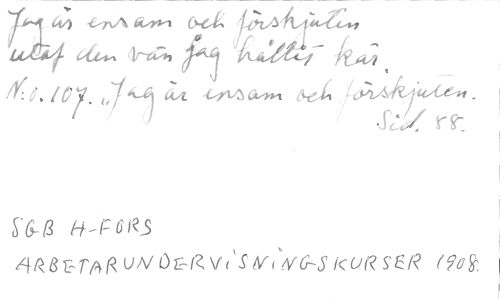 Jag är ensam och förskjuten
utaf den vän jag hållit kär.
N:o. 107. "Jag är ensam och förskjuten.
Sid. 88.
SGB H-FORS
ARBETARUNDERVISNINGSKURSER 1908.